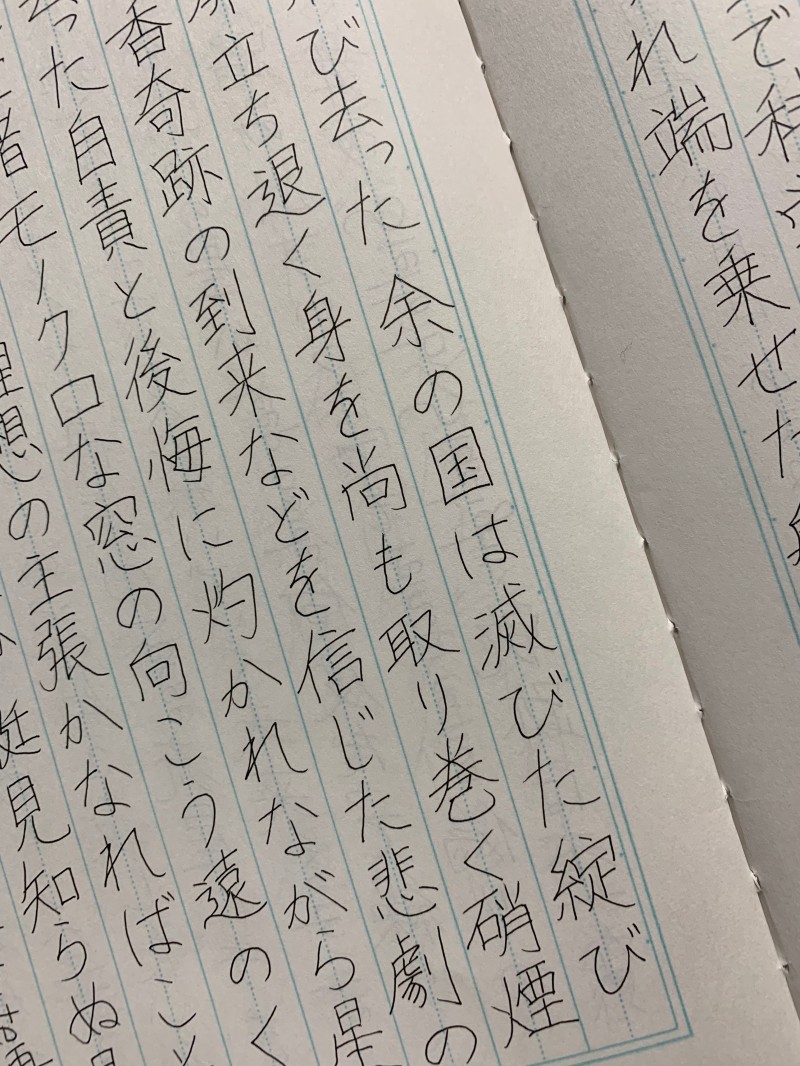 で
れ端を乗せた
び去った余の国は滅びた綻び
立ち退く身を尚も取り巻く硝煙
香奇跡の到来などを信じた悲劇の
った自責と後悔に灼かれながら星
者モノクロな窓の向こう遠のく
理想の主張かなればこと
見知らぬ